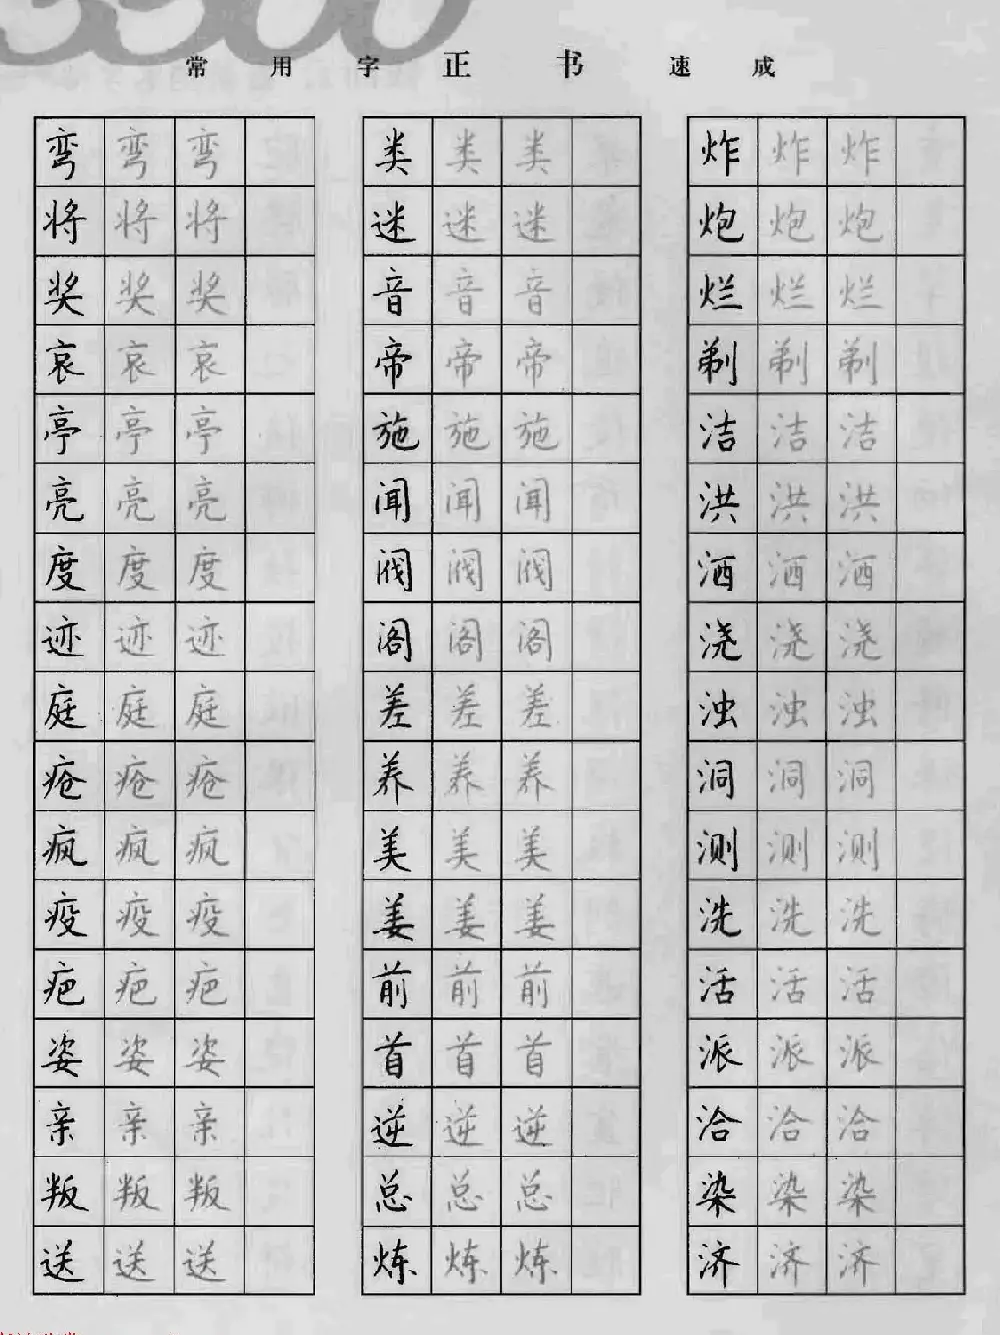 3500
常用字正书速成
弯 弯 弯 类 类 类 炸 炸 炸
将 将 将 迷 迷 迷 炮 炮 炮
奖 奖 奖 音 音 音 烂 烂 烂
哀 哀 哀 帝 帝 帝 剃 剃 剃
亭 亭 亭 施 施 施 洁 洁 洁
亮 亮 亮 闻 闻 闻 洪 洪 洪
度 度 度 阀 阀 阀 洒 洒 洒
迹 迹 迹 阁 阁 阁 浇 浇 浇
庭 庭 庭 差 差 差 浊 浊 浊
疮 疮 疮 养 养 养 洞 洞 洞
疯 疯 疯 美 美 美 测 测 测
疫 疫 疫 姜 姜 姜 洗 洗 洗
疤 疤 疤 前 前 前 活 活 活
姿 姿 姿 首 首 首 派 派 派
亲 亲 亲 逆 逆 逆 洽 洽 洽
叛 叛 叛 总 总 总 染 染 染
送 送 送 炼 炼 炼 济 济 济